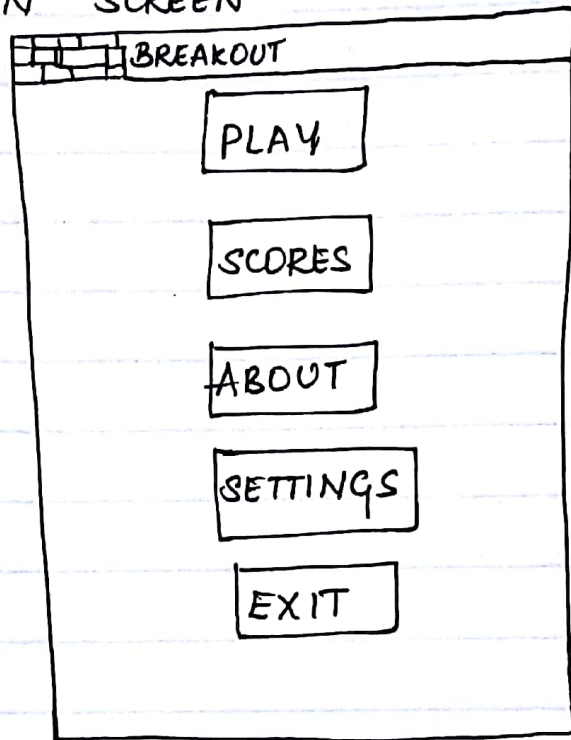 SCREEN
BREAKOUT
PLAY
SCORES
ABOUT
SETTINGS
EXIT